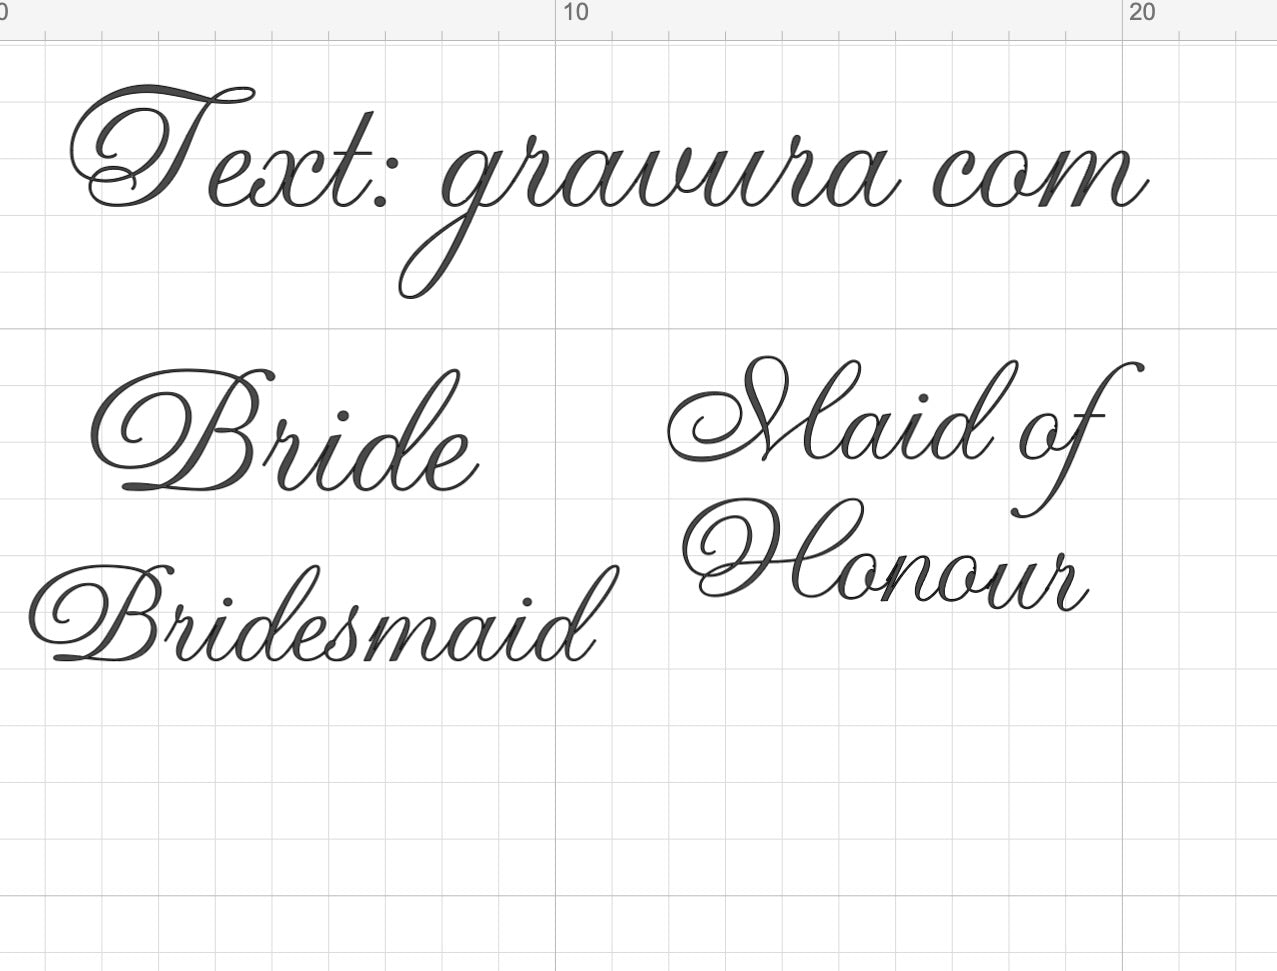 0 10 20
Text: gravura com
Bride
Maid of
Honour
Bridesmaid